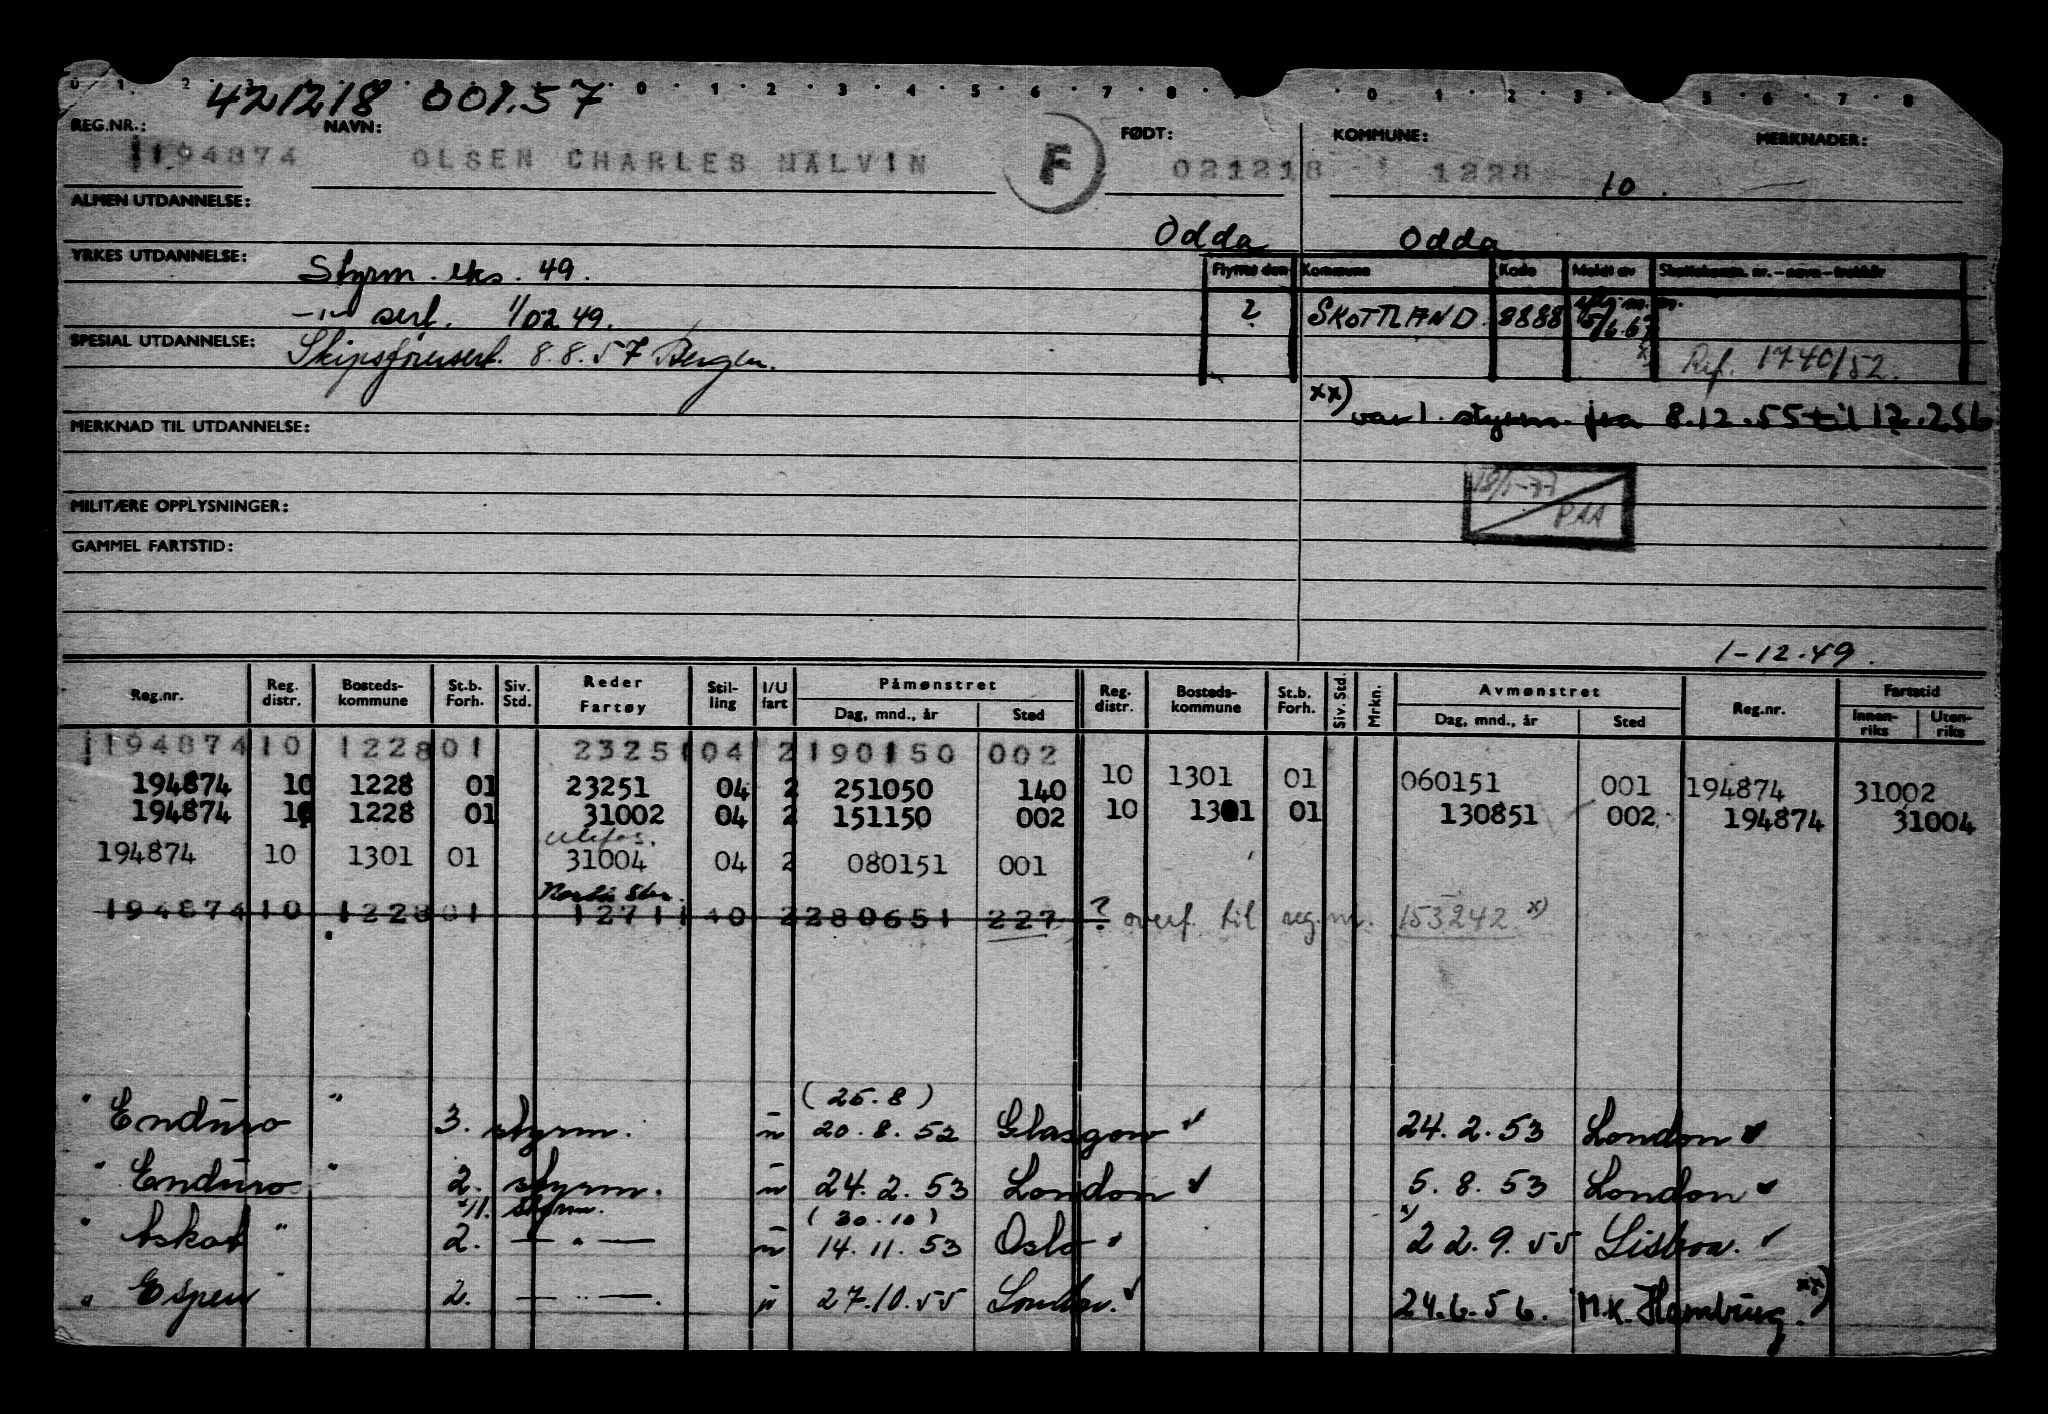 0 1 2 3 0 1 2 3 4 5 6 7 8 0 1 2 3 5 6 7 8
421218 001.57
REG.NR.: NAVN: FØDT: KOMMUNE: MERKNADER:
194874 OLSEN CHARLES MALVIN F 021218 1228 10.
ALMEN UTDANNELSE:
Odda Odda
YRKES UTDANNELSE: Styrm. eks. 49.
Flyttet den Kommune Kode Meldt av Skattekomm. nr. - navn - trekkår
-"- sert. 1/02 49.
? SKOTTLAND 8888 15/6.67
SPESIAL UTDANNELSE: Skipsførersert. 8.8.57 Bergen.
Rif. 1740/52.
xx) var 1. styrm. fra 8.12.55 til 12.2.56
MERKNAD TIL UTDANNELSE:
PAA
MILITÆRE OPPLYSNINGER:
GAMMEL FARTSTID:
1-12.49.
Reg.nr. Reg. distr. Bosteds-kommune St.b. Forh. Siv. Std. Reder Fartøy Stil-ling I/U fart Påmønstret Dag, mnd., år Sted Reg. distr. Bosteds-kommune St.b. Forh. Siv. Std. Mrkn. Avmønstret Dag, mnd., år Sted Reg.nr. Fartstid Innen-riks Uten-riks
194874 10 1228 01 23251 04 2 190150 002
194874 10 1228 01 23251 04 2 251050 140 10 1301 01 060151 001 194874 31002
194874 10 1228 01 31002 04 2 151150 002 10 1301 01 130851 002 194874 31004
Ulefos.
194874 10 1301 01 31004 04 2 080151 001
North Star.
194874 10 1228 01 12711 40 2 280651 227 ? overf. til reg.nr. 153242 x)
(25.8)
" Enduro " 3. styrm. u 20.8.52 Glasgow 24.2.53 London
" Enduro " 2. styrm. u 24.2.53 London 5.8.53 London
x/1. styrm. (30.10)
" Askot " 2. — " — u 14.11.53 Oslo x) 22.9.55 Lisboa.
" Espen " 2. — " —. u 27.10.55 London. 24.6.56. M.K. Hamburg. xx)